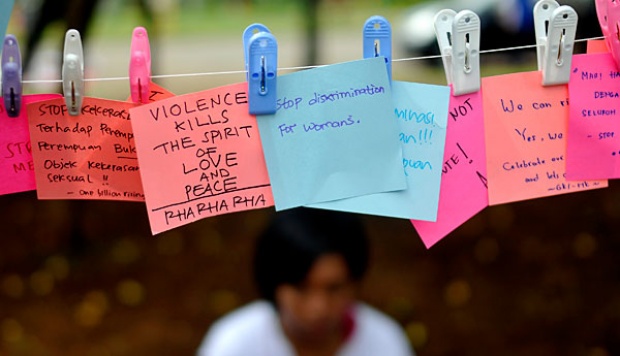 STOP
STOP KEKERAS
Terhadap Perempu
Perempuan Buk
Objek kekerasa
seksual !!
- one billion rising
VIOLENCE
KILLS
THE SPIRIT
OF
LOVE
AND
PEACE
Stop discrimination
For woman's.
minasi,
an !!!
puan
NOT
UTE!
We can
Yes, we
Celebrate ou
and let's
Mari Ha
Seluruh
- STOP